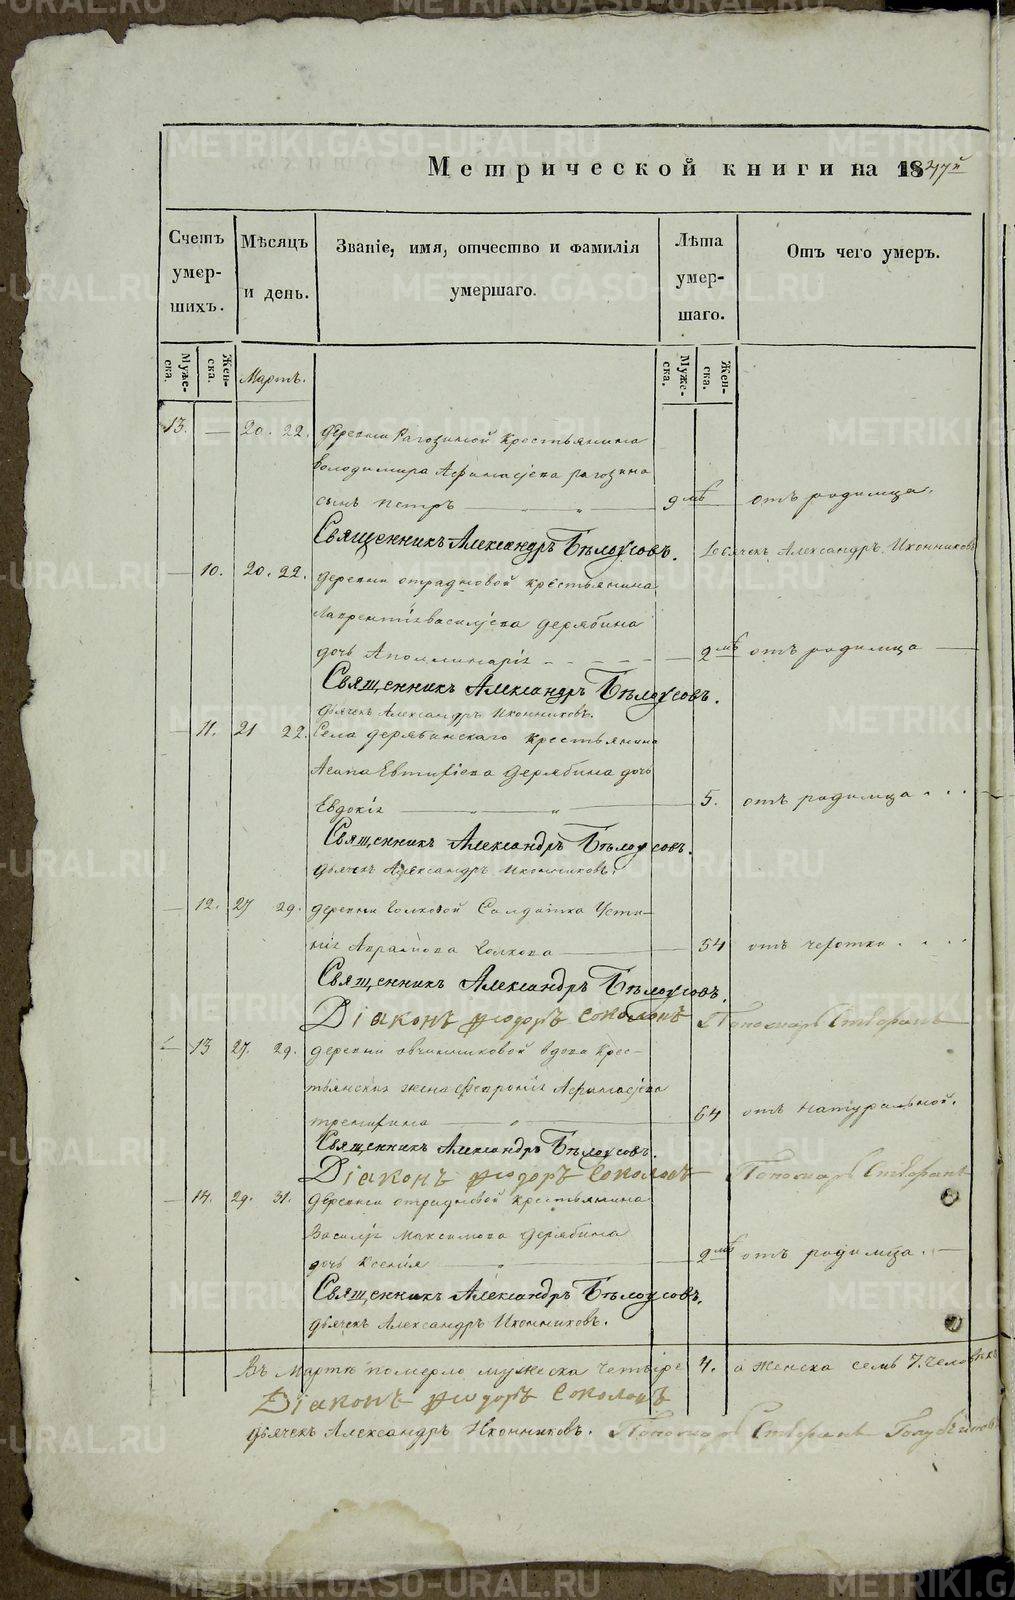 Метрической книги на 1847й
Счетъ умер-шихъ.
Мѣсяцъ и день.
Званіе, имя, отчество и фамилія умершаго.
Лѣта умер-шаго.
Отъ чего умеръ.
Муже-ска.
Жен-ска.
Мартъ.
Муже-ска.
Жен-ска.
13. — 20. 22. деревни Рагозиной крестьянина
Володимира Афанасьева рагозина
сынъ петръ — " — " — 9 мѣ отъ родимца.
Священникъ Александръ Бѣлоусовъ. Дьячекъ Александръ Иконниковъ
— 10. 20. 22. деревни отрадновой крестьянина
Лаврентія васильева дерябина
дочь Аполлинарія — 2 мѣ отъ родимца —
Священникъ Александръ Бѣлоусовъ.
дьячекъ Александръ Иконниковъ.
— 11. 21 22. Села дерябинскаго крестьянина
Евтифіева дерябина дочь
Евдокія — " — " — 5. отъ родимца . . .
Священникъ Александръ Бѣлоусовъ.
дьячекъ Александръ Иконниковъ.
— 12. 27 29. деревни волковой Салдатка Усти-
нія Абрамова волкова — 54 отъ чехотки . . . .
Священникъ Александръ Бѣлоусовъ.
Діаконъ Ѳиодоръ Соколовъ Пономарь Стефанъ
— 13 27. 29. деревни овчинниковой вдова крес-
тьянская жена Феврония Афанасьева
— " — 64 отъ натуральной.
Священникъ Александръ Бѣлоусовъ.
Діаконъ Ѳиодоръ Соколовъ Пономарь Стефанъ
— 14. 29. 31. деревни отрадновой крестьянина
Василья Максимова дерябина
дочь Ксенія — " — 2 мѣ отъ родимца. —
Священникъ Александръ Бѣлоусовъ.
дьячекъ Александръ Иконниковъ.
Въ Мартѣ померло мужеска четыре 4. а женска семь 7. человѣкъ
Діаконъ Ѳиодоръ Соколовъ
дьячекъ Александръ Иконниковъ. Пономарь Стефанъ
METRIKI.GASO-URAL.RU